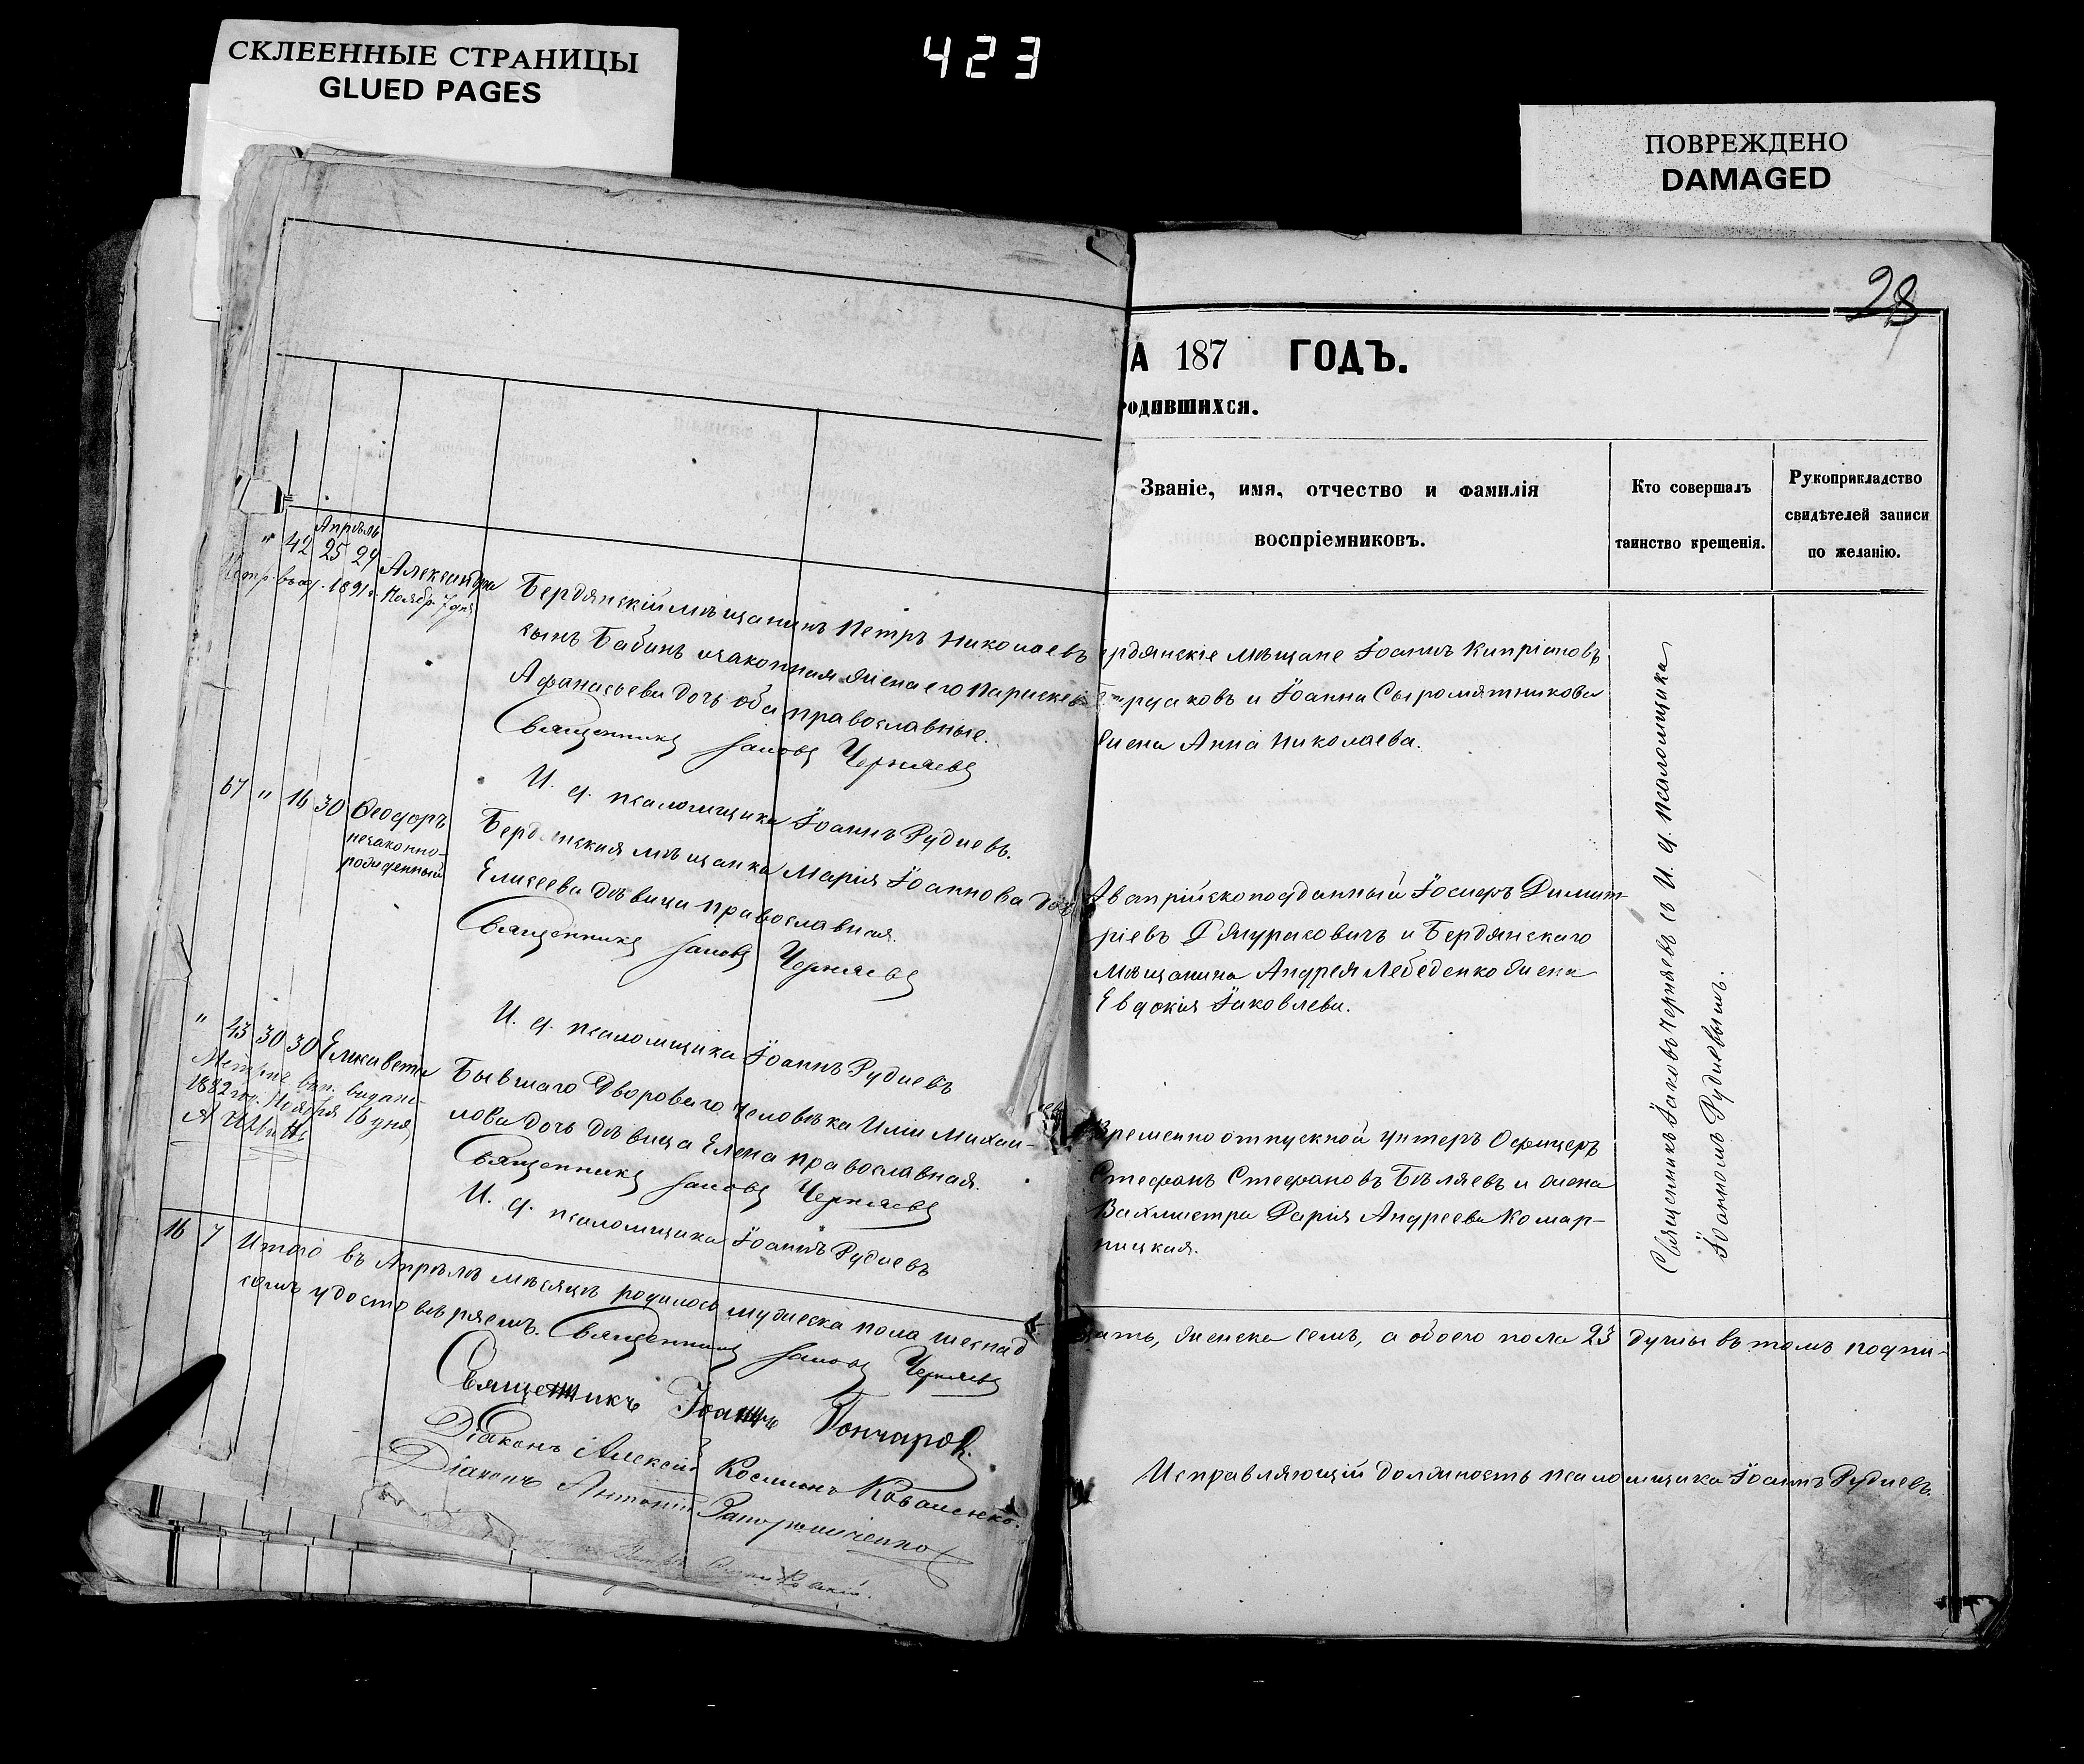 СКЛЕЕННЫЕ СТРАНИЦЫ
GLUED PAGES
423
ПОВРЕЖДЕНО
DAMAGED
28
А 187 ГОДЪ.
одившихся.
Званіе, имя, отчество и фамилія
воспріемниковъ.
Кто совершалъ
таинство крещенія.
Рукоприкладство
свидѣтелей записи
по желанію.
Апрѣль
" 42 25 29 Александра
1891 г. Ноябр. 7 дня
Бердянскій мѣщанинъ Петръ Николаевъ
сынъ Бабинъ и законная жена его Параскева
Афанасьева дочь оба православные.
Священникъ Іаковъ Черняевъ
И. д. псаломщика Іоаннъ Рудиевъ.
рдянскіе мѣщане Іоаннъ Кипріановъ
и Іоанна Сыромятникова
жена Анна Николаева.
67 " 16 30 Ѳеодоръ
незаконно-
рожденный
Бердянская мѣщанка Марія Іоаннова доч
Елисеева дѣвица православная.
Священникъ Іаковъ Черняевъ
И. д. псаломщика Іоаннъ Рудиевъ
Австрійскоподданный Іосифъ Димит-
ріевъ и Бердянскаго
мѣщанина Андрея Лебеденко жена
Евдокія Іаковлева.
" 43 30 30 Елисавета
1882 год. Ноября 16 дня,
Бывшаго Двороваго человѣка Иліи Михаи-
лова дочь дѣвица Елена православная.
Священникъ Іаковъ Черняевъ
И. д. псаломщика Іоаннъ Рудиевъ
Временно отпускной унтеръ Офицеръ
Стефанъ Стефановъ Бѣляевъ и жена
Вахмистра Дарія Андреева Комар-
ницкая.
Священникъ Іаковъ Черняевъ съ И. д. псаломщика
Іоанномъ Рудиевымъ.
16 7 Итого въ Апрѣлѣ мѣсяцѣ родилось мужеска пола шестнад
цать, женска семь, а обоего пола 23 души въ томъ подпи-
сомъ удостовѣряемъ. Священникъ Іаковъ Черняевъ
Священникъ Іоаннъ Гончаровъ.
Діаконъ Алексій Косминъ Коваленко.
Діаконъ Антоній Запорожченко
Исправляющій должность псаломщика Іоаннъ Рудиевъ.